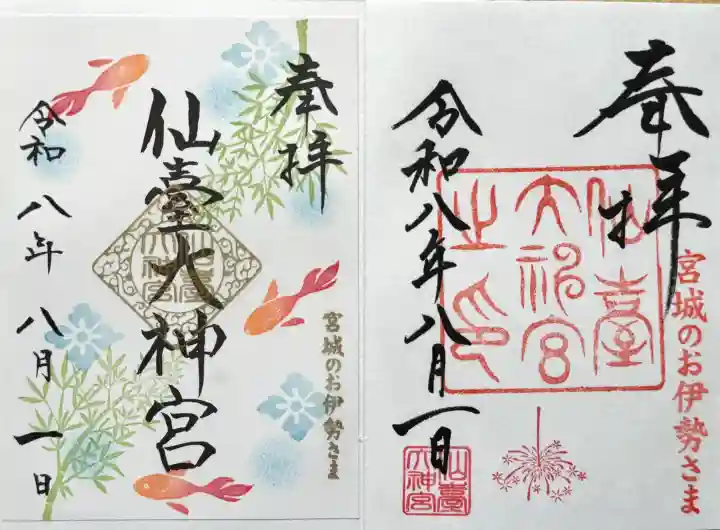 奉拝
仙臺大神宮
宮城のお伊勢さま
令和八年八月一日
仙臺大神宮
奉拝
仙臺大神宮之印
宮城のお伊勢さま
令和八年八月一日
仙臺大神宮